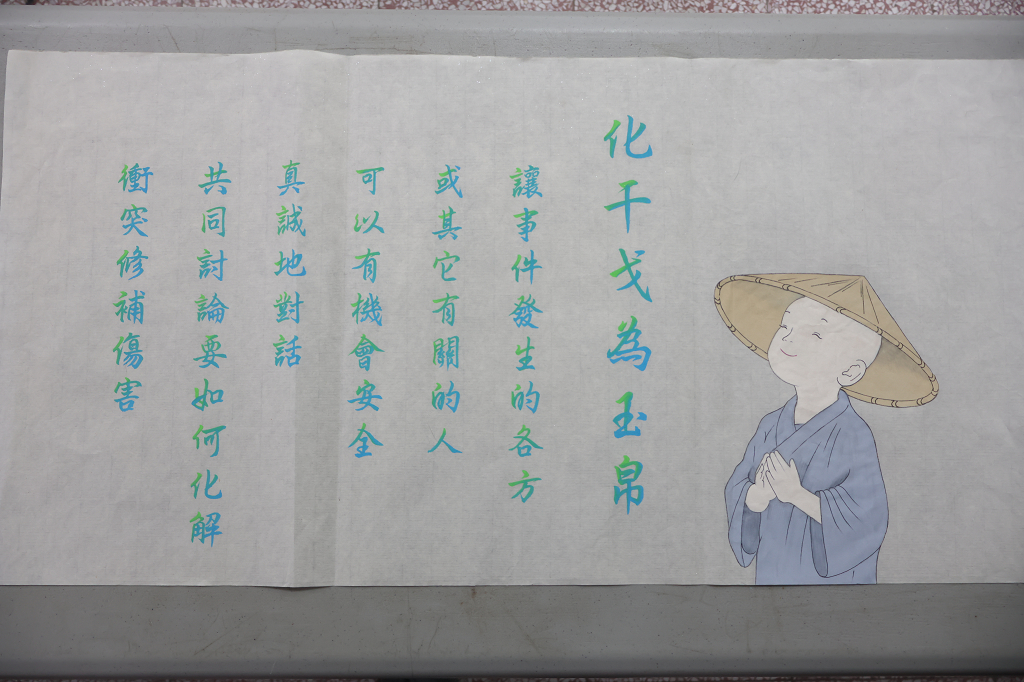 化干戈為玉帛
讓事件發生的各方
或其它有關的人
可以有機會安全
真誠地對話
共同討論要如何化解
衝突修補傷害